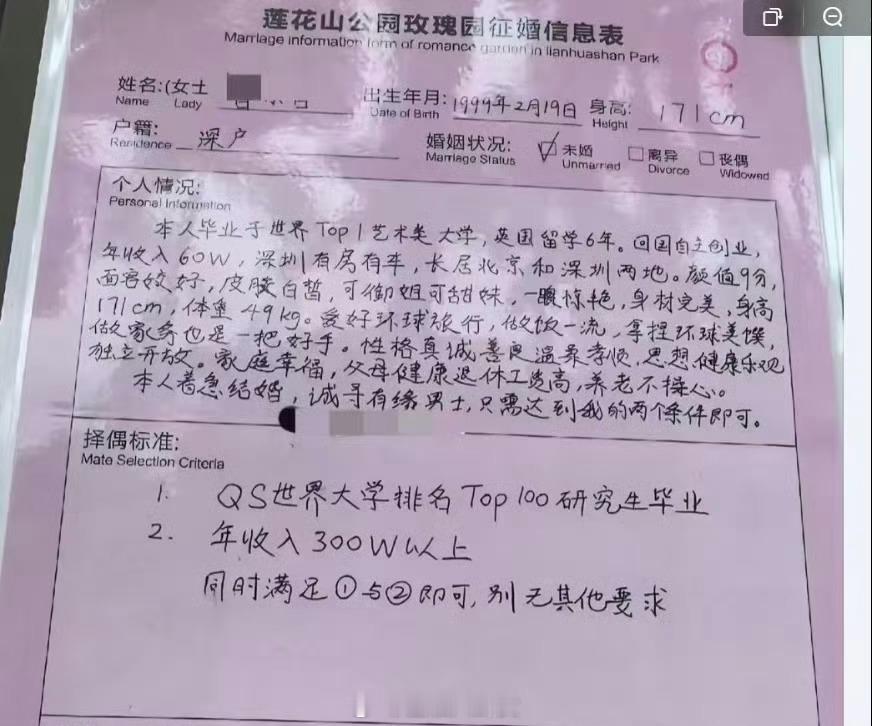 莲花山公园玫瑰园征婚信息表
Marriage information form of romance garden in lianhuashan Park
姓名:(女士 出生年月: 1999年2月19日 身高: 171cm
Name Lady Date of Birth Height
户籍: 深户 婚姻状况: 未婚 离异 丧偶
Residence Marriage Status Unmarried Divorce Widowed
个人情况:
Personal Information
本人毕业于世界Top1艺术类大学,英国留学6年。回国自主创业,
年收入60W,深圳有房有车,长居北京和深圳两地。颜值9分,
面容姣好,皮肤白皙,可御姐可甜妹,一眼惊艳,身材完美,身高
171cm,体重49kg。爱好环球旅行,做饭一流,拿捏环球美馔,
做家务也是一把好手。性格真诚善良温柔孝顺,思想健康乐观
独立开放。家庭幸福,父母健康退休工资高,养老不操心。
本人着急结婚,诚寻有缘男士,只需达到我的两个条件即可。
择偶标准:
Mate Selection Criteria
1. QS世界大学排名Top100研究生毕业
2. 年收入300W以上
同时满足①与②即可,别无其他要求